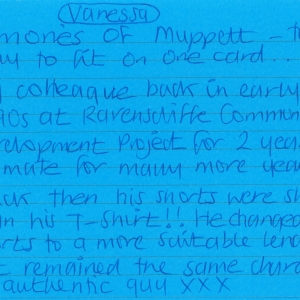 Vanessa
mories of Muppett - t
ny to fit on one card..
colleague back in early
90s at Ravenscliffe Commun
velopment Project for 2 year
mate for many more year
ck then his shorts were sh
an his T-shirt!! He changed
rts to a more suitable leng
t remained the same chara
authentic guy xxx